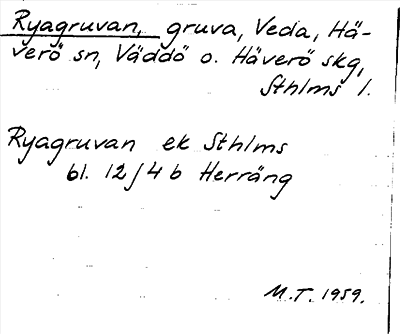 Ryagruvan, gruva, Veda, Hä-
verö sn, Väddö o. Häverö skg,
Sthlms l.
Ryagruvan ek Sthlms
bl. 12/4 b Herräng
M.T. 1959.